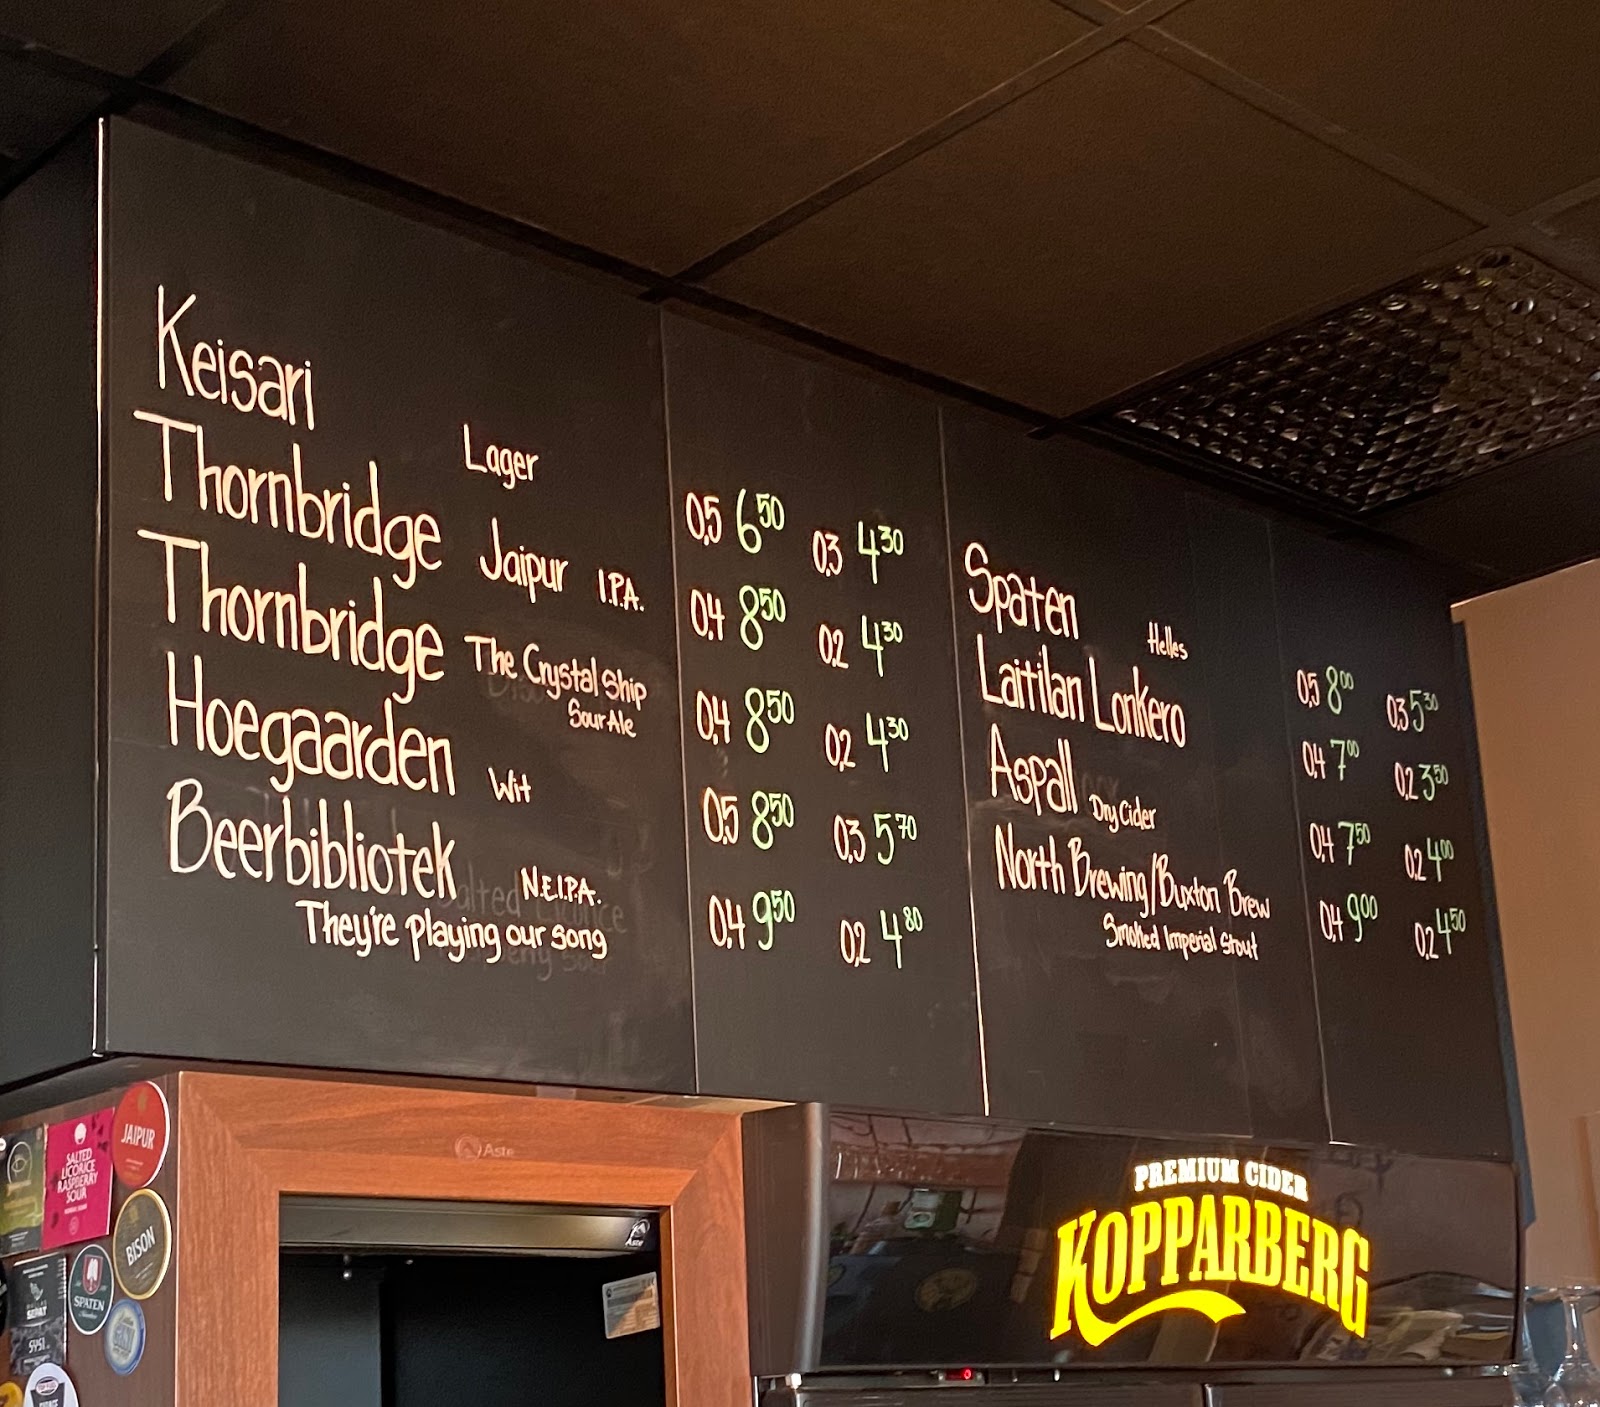 Keisari Lager 0,5 6 50 0,3 4 30
Thornbridge Jaipur I.P.A. 0,4 8 50 0,2 4 30
Thornbridge The Crystal Ship 0,4 8 50 0,2 4 30
Sour Ale
Hoegaarden Wit 0,5 8 50 0,3 5 70
Beerbibliotek N.E.I.P.A. 0,4 9 50 0,2 4 80
They're playing our song
Spaten Helles 0,5 8 00 0,3 5 30
Laitilan Lonkero 0,4 7 00 0,2 3 50
Aspall Dry Cider 0,4 7 50 0,2 4 00
North Brewing/Buxton Brew 0,4 9 00 0,2 4 50
Smoked Imperial Stout
PREMIUM CIDER
KOPPARBERG
Aste
Aste
JAIPUR
SALTED
LICORICE
RASPBERRY
SOUR
BISON
SPATEN